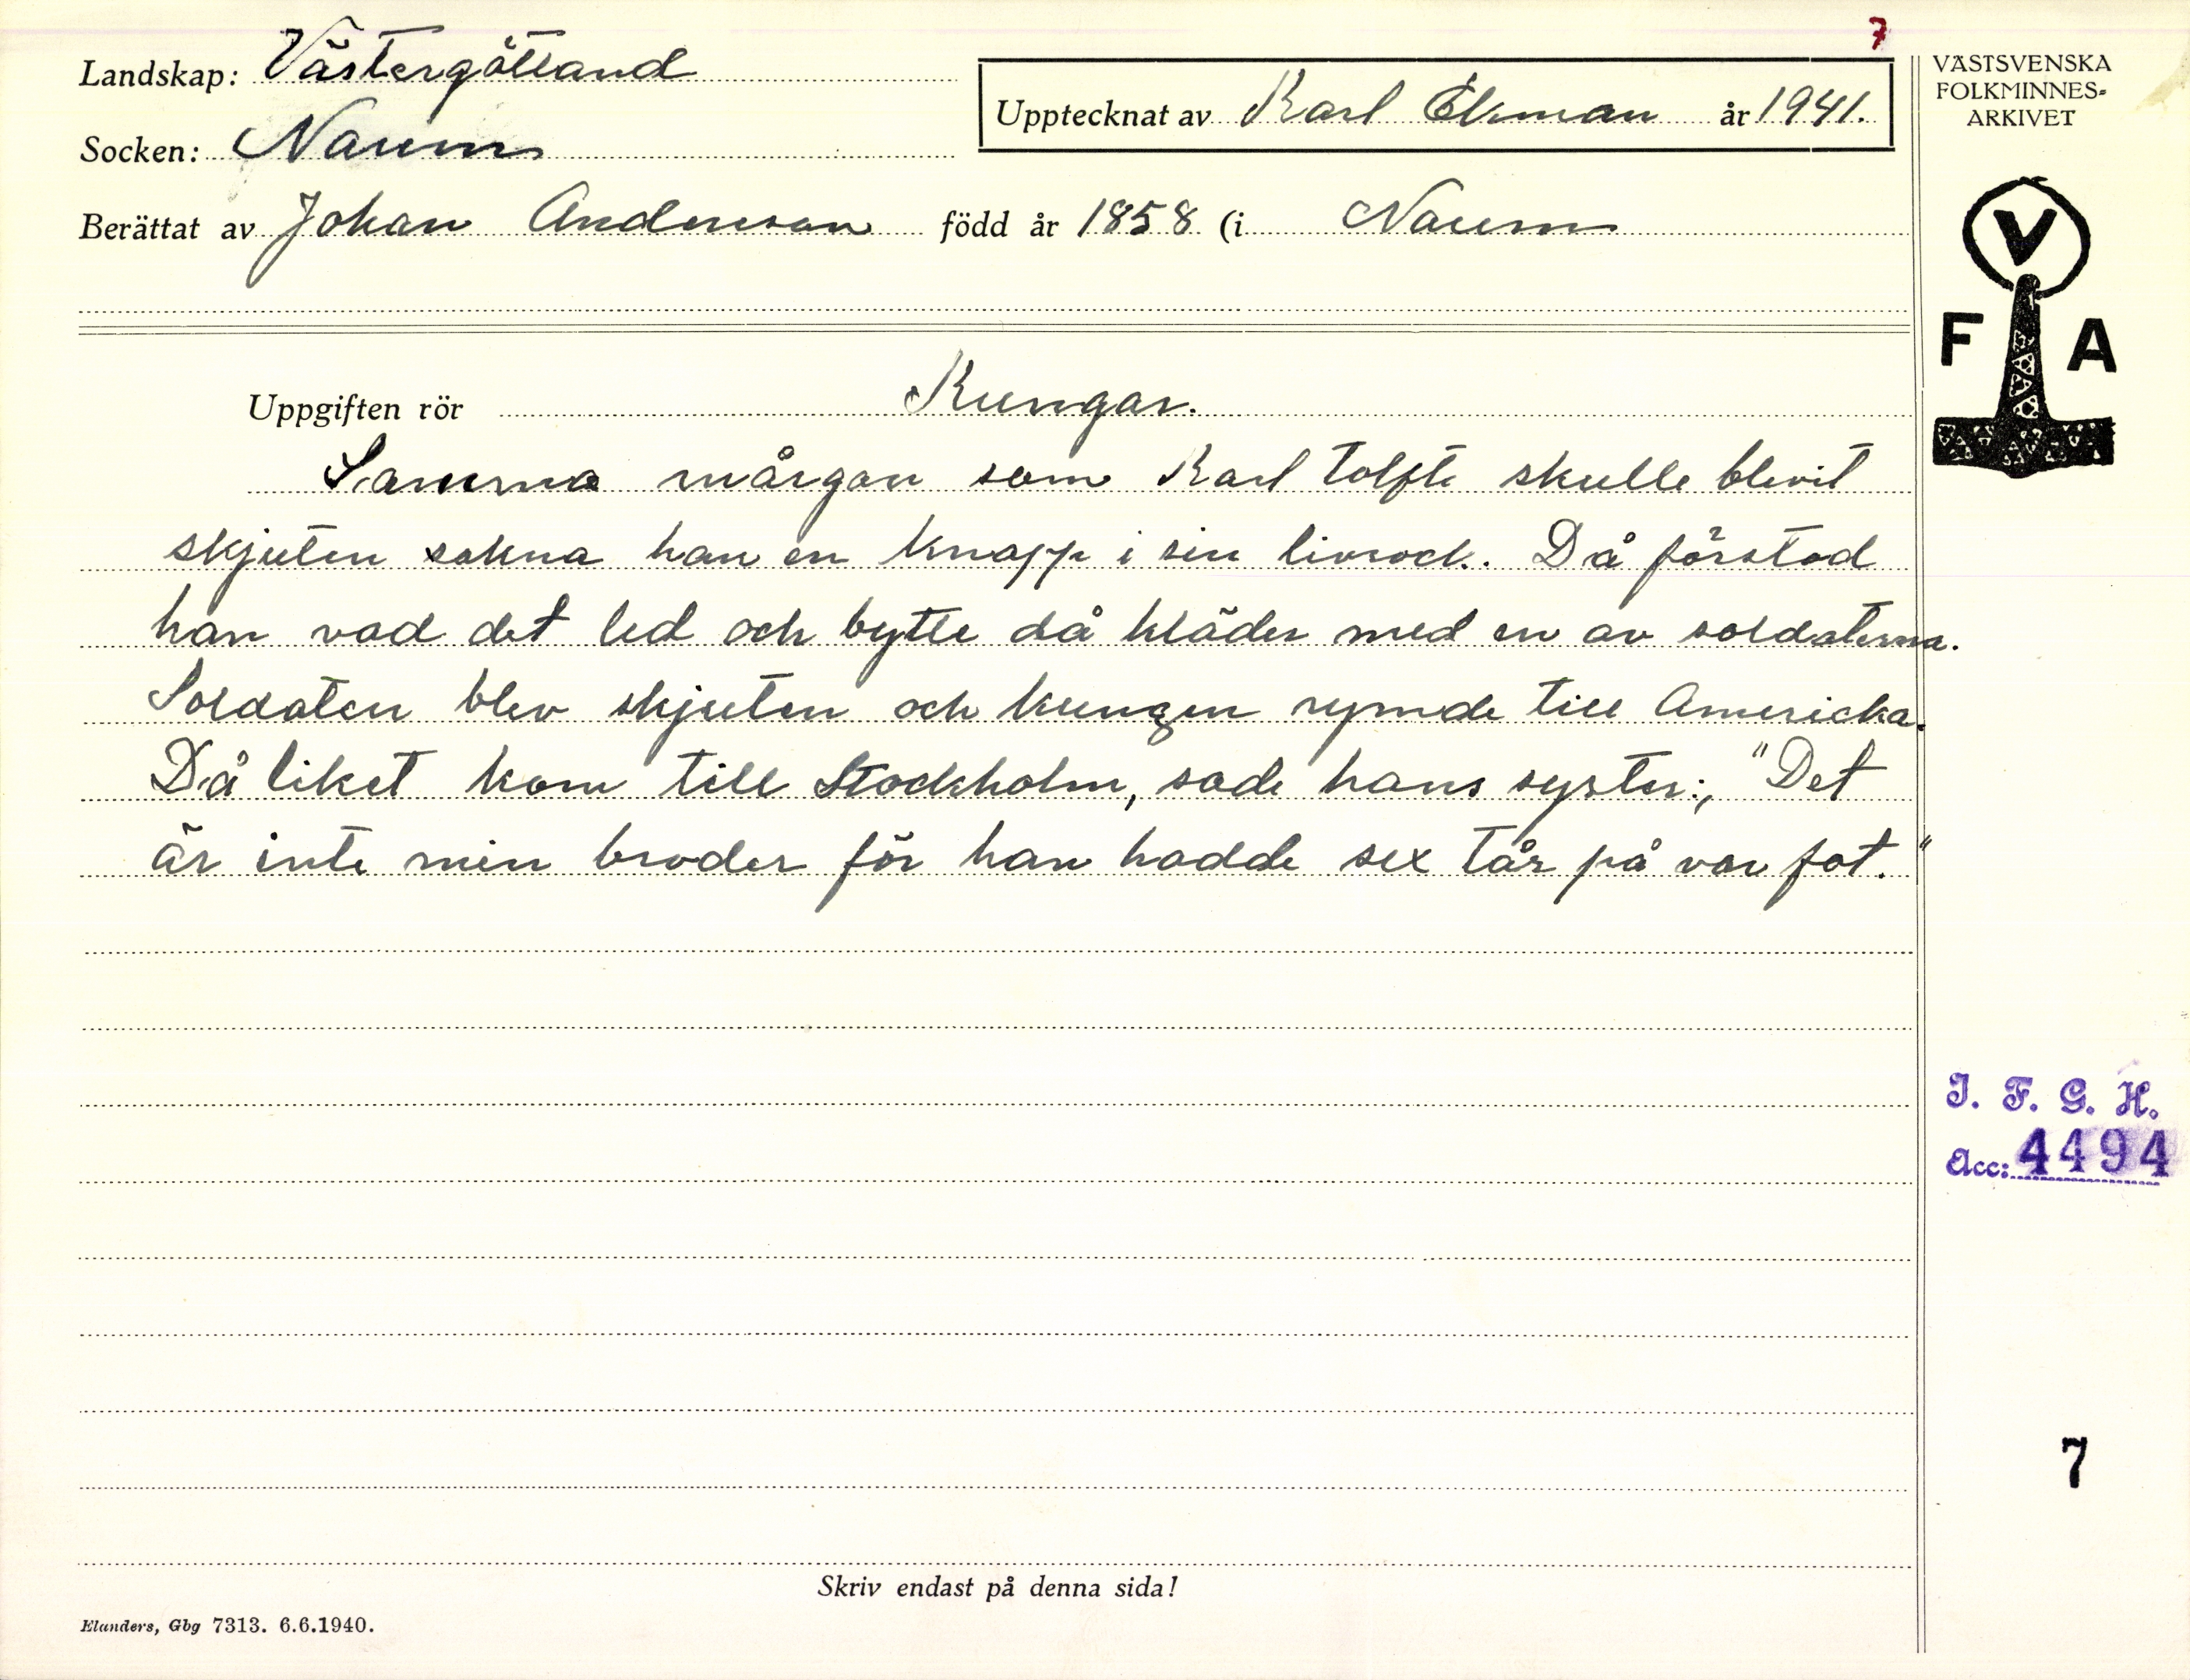 7
Landskap: Västergötland
Upptecknat av Karl Ekman år 1941.
Socken: Naum
Berättat av Johan Andersson född år 1858 (i Naum
VÄSTSVENSKA
FOLKMINNES-
ARKIVET
V
F A
Uppgiften rör Kungar.
Samma mårgon som Karl tolfte skulle blevit
skjuten sakna han en knapp i sin livrock. Då förstod
han vad det led och bytte då kläder med en av soldaterna.
Soldaten blev skjuten och kungen rymde till Americka.
Då liket kom till Stockholm, sade hans syster:, "Det
är inte min broder för han hadde sex tår på var fot."
I. F. G. H.
Acc: 4494
7
Skriv endast på denna sida!
Elanders, Gbg 7313. 6.6.1940.